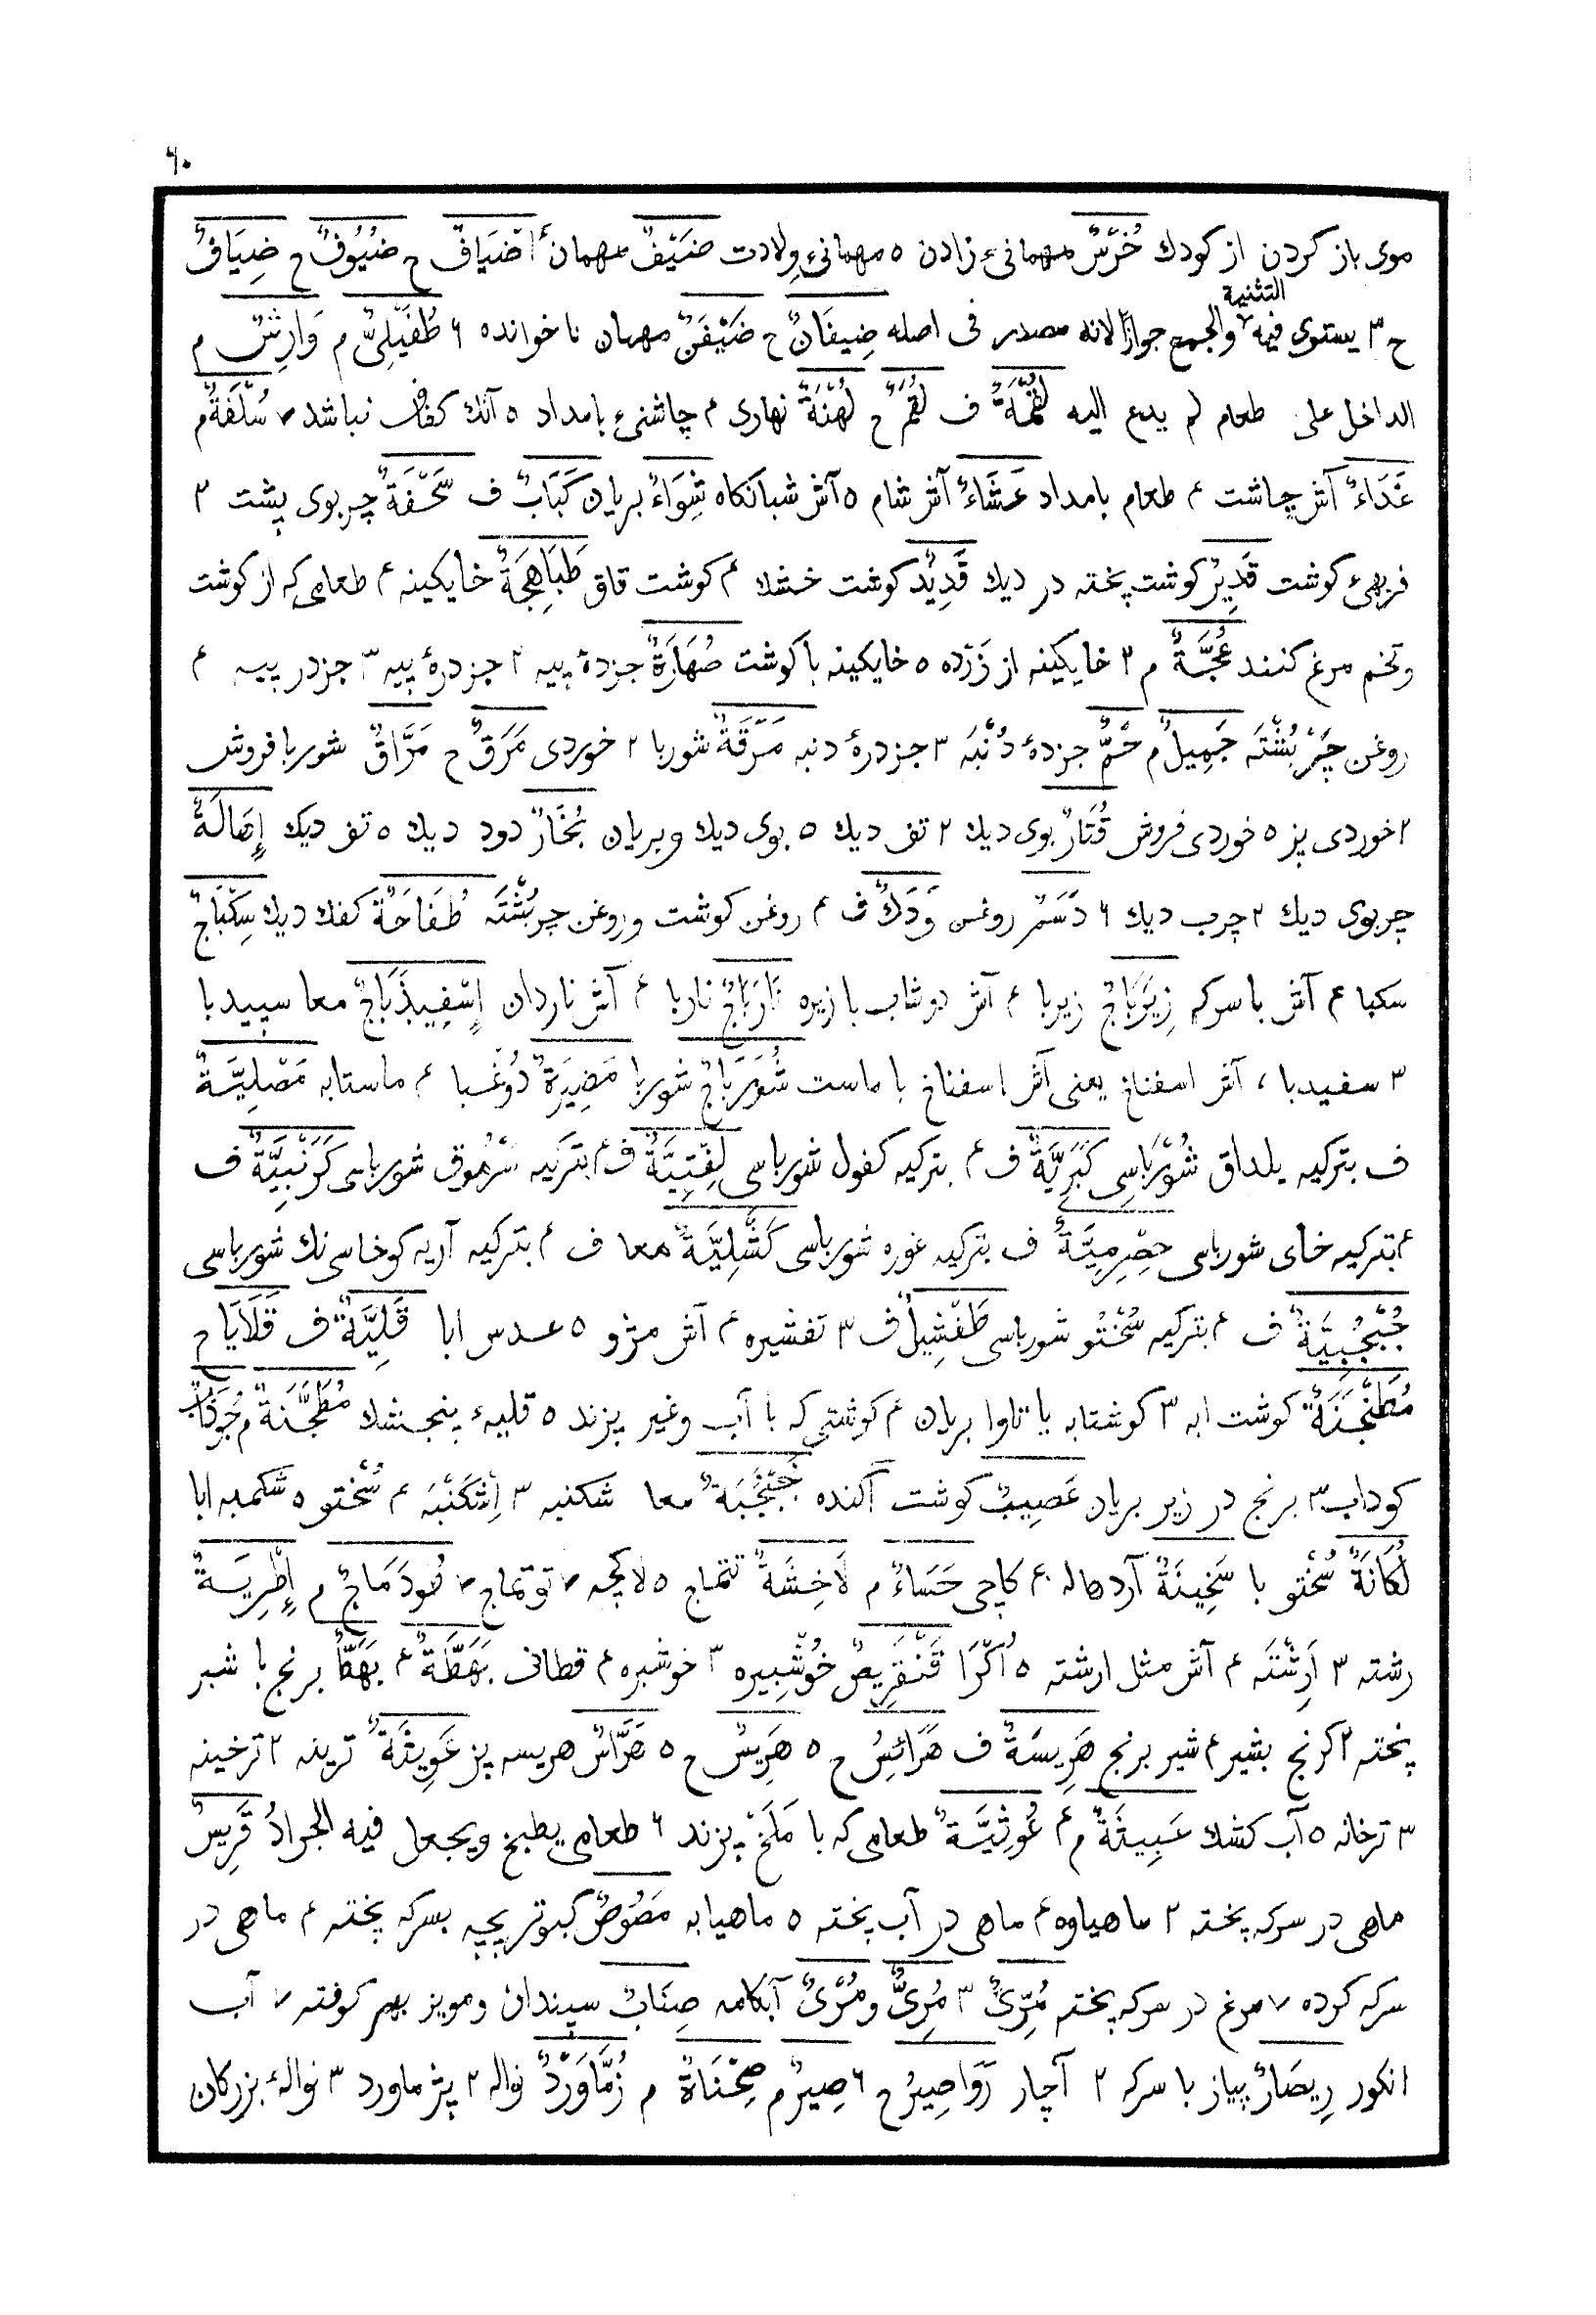 ۶۰
موی باز کردن از کودك خُرْسٌ مهمانیٔ زادن ۵ مهمانیٔ ولادت ضَیْفٌ مهمان ۴ اَضْیَافٌ ح ضُیُوفٌ ح ضِیَافٌ
التثنیة
ح ۳ یستوی فیه والجمع جوازًا لانه مصدر فی اصله ضِیفَانٌ ح ضَیْفَنٌ مهمان ناخوانده ۶ طُفَیْلِیٌّ م وَارِشٌ م
الداخل علی طعام لم یدع الیه لُقْمَةٌ ف لُقَمٌ ح لُهْنَةٌ نهاری ۴ چاشنیٔ بامداد ۵ آنك کفاف نباشد ۷ سُلْفَةٌ م
غَدَاءٌ آش چاشت ۴ طعام بامداد عَشَاءٌ آش شام ۵ آش شبانکاه شِوَاءٌ بریان کَبَابٌ ف سَحْفَةٌ چربوی پشت ۳
فربهیٔ کوشت قَدِیرٌ کوشت پخته در دیك قَدِیْدٌ کوشت خشك ۴ کوشت قاق طَبَاهِجَةٌ خایکینه ۴ طعامی که از کوشت
وتخم مرغ کنند عُجَّةٌ م ۳ خایکینه از زَرْده ۵ خایکینه با کوشت صُهَارَةٌ جزدهٔ پیه ۲ جزدرهٔ پیه ۳ جزدر پیه ۴
روغن چَرْبُشْتَه جَمِیلٌ م حَمٌّ جزدهٔ دُنْبَه ۳ جزدرهٔ دنبه مَرَقَةٌ شوربا ۲ خوردی مَرَقٌ ح مَرَّاقٌ شوربا فروش
۲ خوردی پز ۵ خوردی فروش قُتَارٌ بوی دیك ۲ تف دیك ۵ بوی دیك وبریان بُخَارٌ دود دیك ۵ تف دیك إِهَالَةٌ
چربوی دیك ۲ چرب دیك ۶ دَسَمٌ روغن وَدَكٌ ف ۴ روغن کوشت وروغن چربُشْتَه طُفَاحَةٌ کفك دیك سِکْبَاجٌ
سکبا ۴ آش با سرکه زِیْرَبَاجٌ زیربا ۴ آش دوشاب با زیره نَارَبَاجٌ ناربا ۴ آش ناردان اِسْفِیذَبَاجٌ معا سپیدبا
۳ سفیدبا ، آش اسفناخ یعنی آش اسفناخ با ماست شُوْرَبَاجٌ شوربا مَضِیرَةٌ دُوغبا ۴ ماستابه مَصْلِیَّةٌ
ف بترکیه یلداق شُوْرْبَاسِی کَبَرِیَّةٌ ف ۴ بترکیه کفول شورباسی لِفْتِیَّةٌ ف ۴ بترکیه سَرْمُوق شورباسی کَرَنْبِیَّةٌ ف
۴ بترکیه خای شورباسی حِصْرِمِیَّةٌ ف بترکیه غوره شورباسی کَشْلِیَّةٌ معا ف ۴ بترکیه آریه کوخاسی نك شورباسی
جُبْجُبِیَّةٌ ف ۴ بترکیه سُخْتُو شورباسی طَفْشِیلٌ ف ۳ تفشیره ۴ آش مژو ۵ عدس ابا قَلِیَّةٌ ف قَلَایَا ح
مُطَنْجَنَةٌ کوشت ابه ۳ کوشتابه یا تاوا بریان ۴ کوشتی که با آب وغیر پزند ۵ قلیهٔ پنجشك مُطَجَّنَةٌ م جَوْذَابٌ
کوداب ۳ برنج در زیر بریان عَصِیبٌ کوشت آکنده جَبْجَبَةٌ معا شکنبه ۳ اِشْکَنْبَه ۴ سُخْتو ۵ شکمبه ابا
لُکَانَةٌ سُخْتو با سَخِینَةٌ آرد هاله ۴ کاچی حَسَاءٌ م لَاخِشَةٌ تتماج ۵ لاکچه ۷ توتماج ۷ نُودَمَاجٌ م إِطْرِیَسَةٌ
رشته ۳ اَرِشْتَه ۴ آش مثل ارشته ۵ اُکْرَا قَنْقَرِیصٌ خُوشْبِیره ۳ خوشبره ۴ قطائف بَهَطَّةٌ ۴ بَهَطٌّ برنج با شیر
پخته ۲ کرنج بشیر ۴ شیر برنج هَرِیسَةٌ ف هَرَائِسُ ح ۵ هَرِیسٌ ح ۵ هَرَّاسٌ هریسه پز عَوِیثَةٌ ترینه ۲ ترخینه
۳ ترخانه ۵ آب کشك عَبِیثَةٌ م ۴ غُوثِیَّةٌ طعامی که با مَلَخْ پزند ۶ طعامی یطبخ ویجعل فیه الجرادُ قَرِیسٌ
ماهی در سرکه پخته ۲ ماهیاوه ۴ ماهی در آب پخته ۵ ماهیابه مَصُوصٌ کبوتر بچه بسرکه پخته ۴ ماهی در
سرکه کرده ۷ مرغ در سرکه پخته مُرِّیٌ ۳ مُرِیٌّ ومُرْیٌ آبکامه صِنَابٌ سپندان ومویز بهم کوفته ۷ آب
انکور رِیصَارٌ پیاز با سرکه ۲ آچار رَوَاصِیرُ ح ۶ صِیرٌ م صِحْنَاةٌ م زُمَاوَرْدٌ نواله ۲ پژماورد ۳ نوالهٔ بزرکان